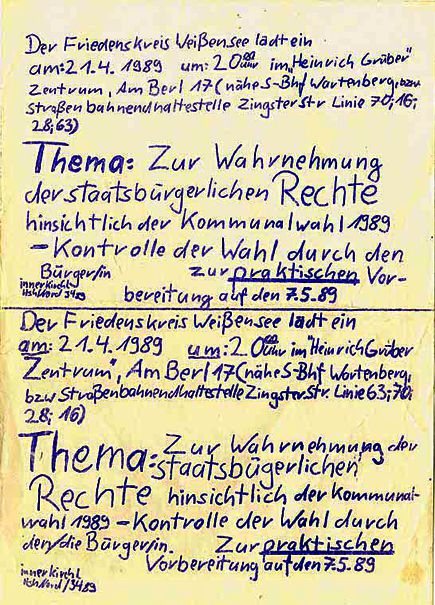 Der Friedenskreis Weißensee lädt ein
am: 21.4. 1989 um: 20 00 Uhr im "Heinrich Grüber"
Zentrum, Am Berl 17 (nähe S-Bhf Wartenberg, bzw
Straßenbahnendhaltestelle Zingster Str Linie 70; 16;
28; 63)
Thema: Zur Wahrnehmung
der staatsbürgerlichen Rechte
hinsichtlich der Kommunalwahl 1989
- Kontrolle der Wahl durch den
Bürger/in zur praktischen Vor-
innerkirchl
bereitung auf den 7.5.89
Der Friedenskreis Weißensee lädt ein
am: 21.4. 1989 um: 20 00 Uhr im "Heinrich Grüber
Zentrum", Am Berl 17 (nähe S-Bhf Wartenberg,
bzw Straßenbahnendhaltestelle Zingster Str. Linie 63; 70;
28; 16)
Thema: Zur Wahrnehmung der
staatsbügerlichen
Rechte hinsichtlich der Kommunal-
wahl 1989 - Kontrolle der Wahl durch
den/die Bürger/in. Zur praktischen
innerkirchl Vorbereitung auf den 7.5.89